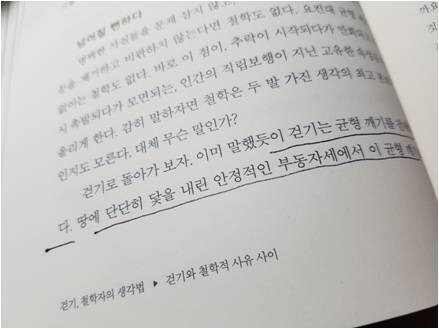 넘어질 뻔하다
명백한 사실들을 문제 삼지 않고,
문을 제기하고 비판하지 않는다면 철학도 없다. 요컨대 균형
없이는 철학도 없다. 바로 이 점이, 추락이 시작되다가 만회되고
시 촉발되다가 모면되는, 인간의 직립보행이 지닌 고유한
올리게 한다. 감히 말하자면 철학은 두 발 가진 생각의 최고
인지도 모른다. 대체 무슨 말인가?
걷기로 돌아가 보자. 이미 말했듯이 걷기는 균형 깨기를
다. 땅에 단단히 닻을 내린 안정적인 부동자세에서 이 균형
걷기, 철학자의 생각법 ▶ 걷기와 철학적 사유 사이